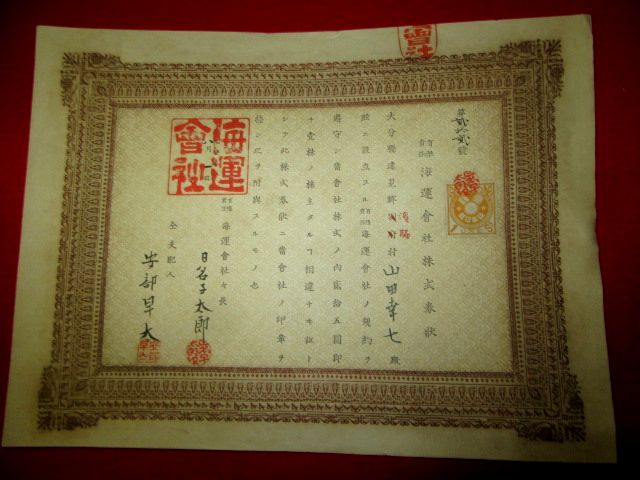 第貳拾貳號
有限責任 海運會社株式券狀
大分縣速見郡 村 山田幸七 殿
設立スル有限責任海運會社ノ規約ヲ
遵守シ當會社株式ノ內貳拾五圓卽
チ壹株ノ株主タルヿ相違ナキヲ証ト
シテ此株式券狀ニ當會社ノ印章ヲ
捺シ之ヲ附與スルモノ也
月 日
有限責任 海運會社々長
日名子太郎
仝支配人
安部早太
海運會社
會社